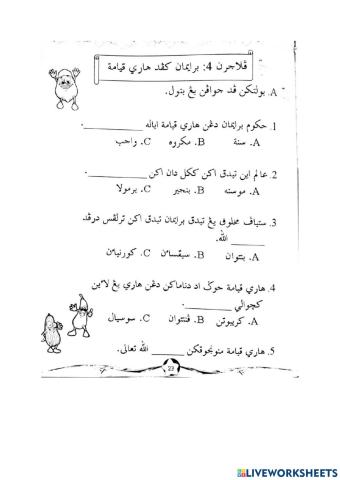 ڤلاجرن 4: برايمان كڤد هاري قيامة
A. بولتكن ڤد جواڤن يڠ بتول.
1. حكوم برايمان دڠن هاري قيامة اياله ________.
A. سنة B. مكروه C. واجب
2. عالم اين تيدق اكن ككل دان اكن ________.
A. موسنه B. بنجير C. برمولا
3. ستياڤ مخلوق يڠ تيدق برايمان تيدق اكن ترلڤس درڤد
______ الله.
A. بنتوان B. سيقسأن C. كورنيأن
4. هاري قيامة جوݢ اد دناماكن دڠن هاري يڠ لاءين
كچوالي ________.
A. كريبوتن B. ڤننتوان C. سوسيال
5. هاري قيامة منونجوقكن ______ الله تعالى.
23
LIVEWORKSHEETS